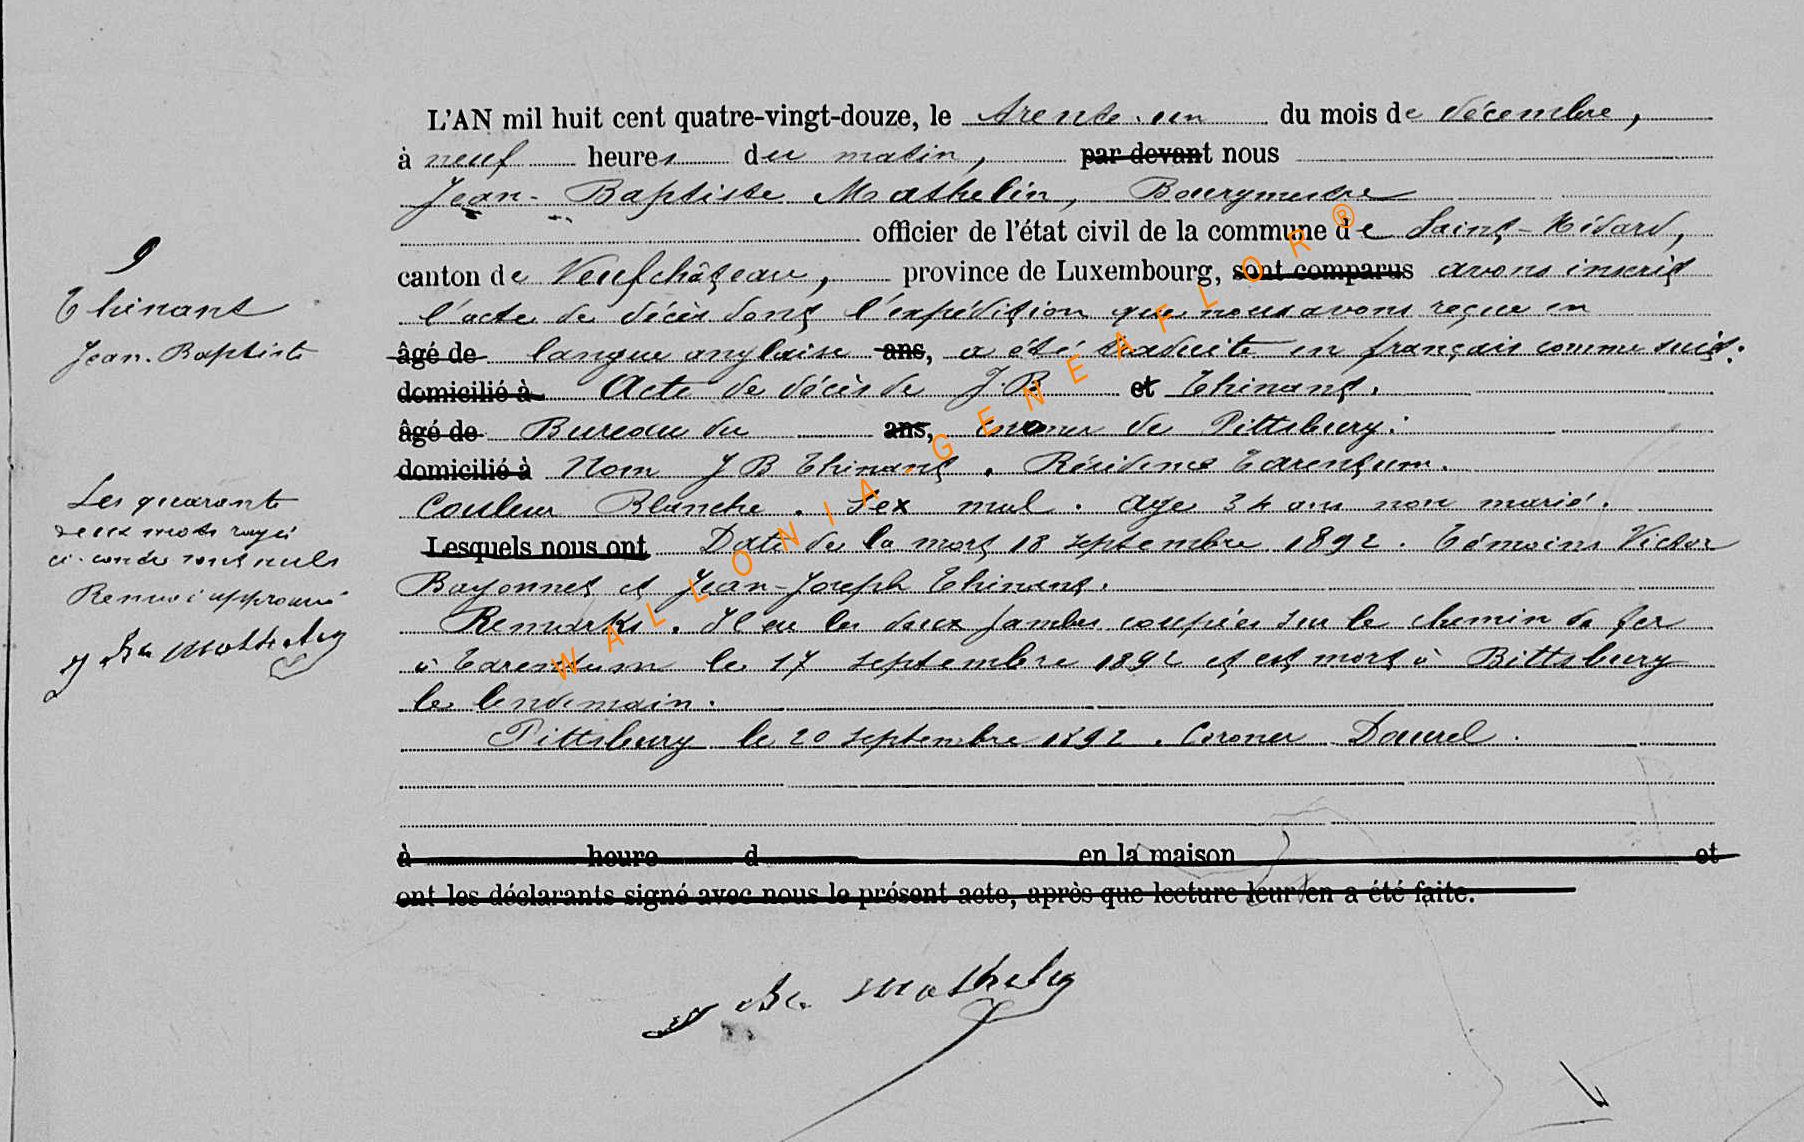 L'AN mil huit cent quatre-vingt-douze, le trente-un du mois de décembre,
à neuf heures du matin, par devant nous
Jean-Baptiste Mathelin, Bourgmestre
officier de l'état civil de la commune de Saint-Médard,
9
canton de Neufchâteau, province de Luxembourg, sont comparus avons inscrit
Thinant
l'acte de décès dont l'expédition que nous avons reçue en
Jean-Baptiste
âgé de langue anglaise ans, a été traduite en français comme suit:
domicilié à Acte de décès de J.B et Thinant.
âgé de Bureau du ans, Coroner de Pittsburg:
domicilié à Nom J B Thinant. Résidence Tarentum.
Les quarante
Couleur Blanche. Sex mal. age 34 ans non marié.
deux mots rayés
Lesquels nous ont Date de la mort 18 septembre 1892. Témoins Victor
ci-contre sont nuls
Bayonnet et Jean-Joseph Thinant.
Renvoi approuvé
Remarks. Il eu les deux jambes coupées sur le chemin de fer
J Bte Mathelin
à Tarentum le 17 septembre 1892 et est mort à Pittsburg
le lendemain.
Pittsburg le 20 septembre 1892. Coroner
à heure d en la maison et
ont les déclarants signé avec nous le présent acte, après que lecture leur en a été faite.
J Bte Mathelin
WALLONIA-GENEAFLOR®